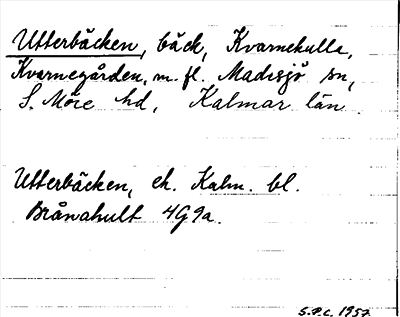 Utterbäcken, bäck, Kvarnekulla,
Kvarnegården, m. fl. Madesjö sn,
S. Möre hd, Kalmar län.
Utterbäcken, ek. Kalm. bl.
Brånahult 4G9a.
S.P.C. 1957.